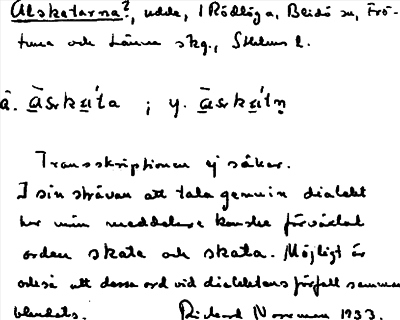 Alskatarna?, udde, i Rödlöga, Blidö sn, Frö-
tuna och Länna skg., Sthlms l.
å. āsrkạ́ta ; y. āsrkạ́tn̥
Transskriptionen ej säker.
I sin strävan att tala genuin dialekt
har min meddelare kanske förväxlat
orden skata och skata. Möjligt är
också att dessa ord vid dialektens förfall samman-
blandats. Rickard Norrman 1933.